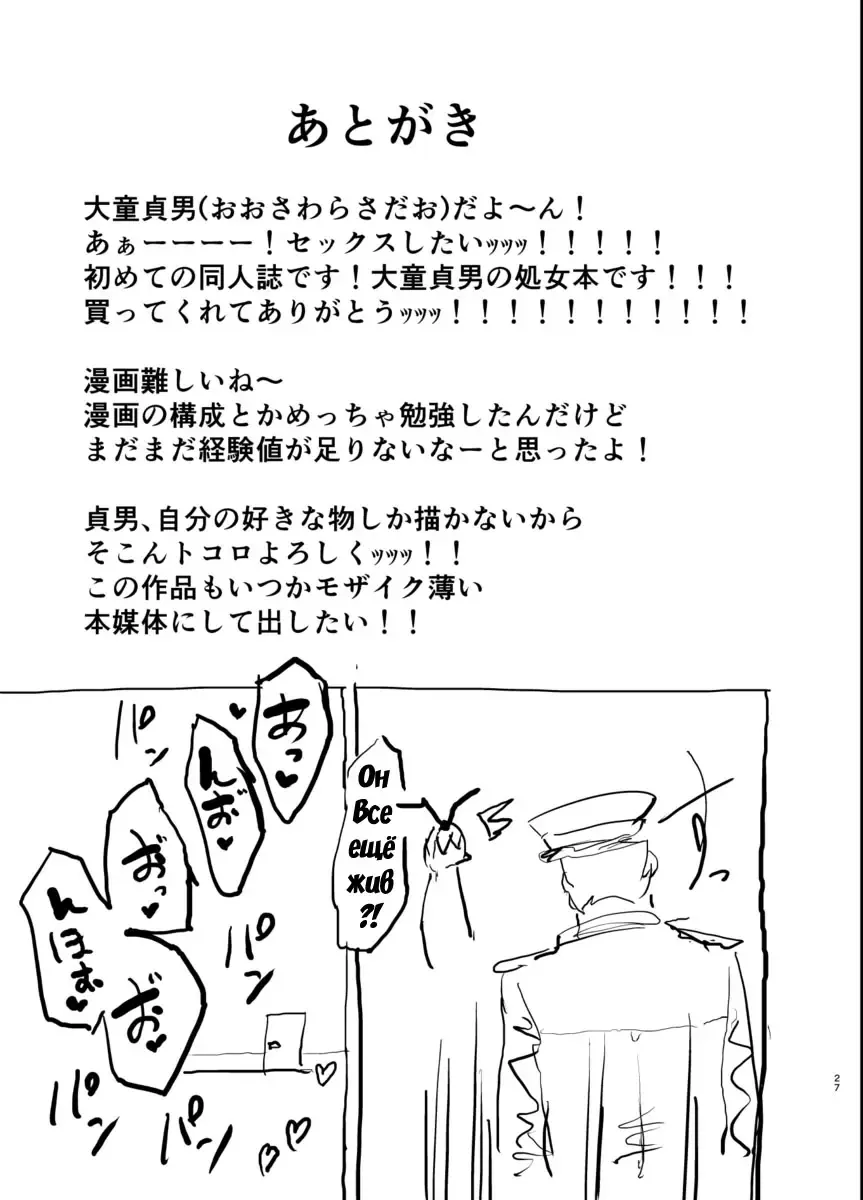 あとがき
大童貞男(おおさわらさだお)だよ～ん！
あぁーーーー！セックスしたいｯｯｯ！！！！！
初めての同人誌です！大童貞男の処女本です！！！
買ってくれてありがとうｯｯｯ！！！！！！！！！！！
漫画難しいね～
漫画の構成とかめっちゃ勉強したんだけど
まだまだ経験値が足りないなーと思ったよ！
貞男、自分の好きな物しか描かないから
そこんトコロよろしくｯｯｯ！！
この作品もいつかモザイク薄い
本媒体にして出したい！！
すっ
Он
Все
ещё
жив
?!
あっ♥
んお♥
おっ♥
んほお♥
お♥
パン
パン
パン
パン
27